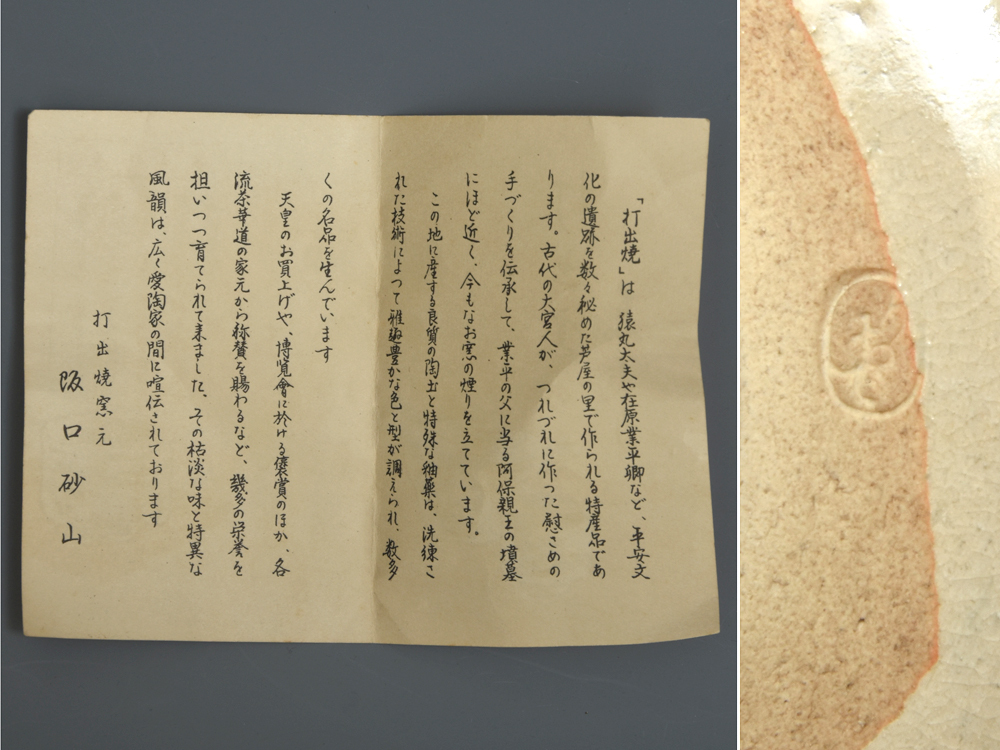 「打出焼」は 猿丸太夫や在原業平卿など、平安文
化の遺跡を数々秘めた芦屋の里で作られる特産品であ
ります。古代の大宮人が、つれづれに作つた慰さめの
手づくりを伝承して、業平の父に当る阿保親王の墳墓
にほど近く、今もなお窯の煙りを立てています。
この地に産する良質の陶土と特殊な釉薬は、洗練さ
れた技術によつて雅趣豊かな色と型が調えられ、数多
くの名品を生んでいます
天皇のお買上げや、博覧會に於ける褒賞のほか、各
流茶華道の家元から称賛を賜わるなど、幾多の栄誉を
担いつつ育てられて来ました、その枯淡な味と特異な
風韻は、広く愛陶家の間に喧伝されております
打出焼窯元
阪口砂山